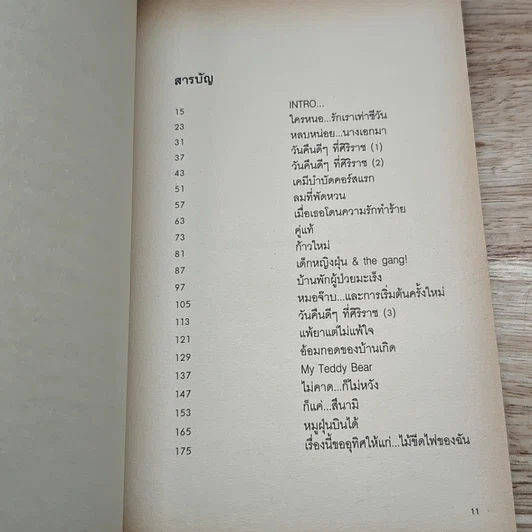 สารบัญ
15 INTRO...
23 ใครหนอ...รักเราเท่าชีวัน
31 หลบหน่อย...นางเอกมา
37 วันคืนดีๆ ที่ศิริราช (1)
43 วันคืนดีๆ ที่ศิริราช (2)
51 เคมีบำบัดคอร์สแรก
57 ลมที่พัดหวน
63 เมื่อเธอโดนความรักทำร้าย
73 คู่แท้
81 ก้าวใหม่
87 เด็กหญิงฝุ่น & the gang!
97 บ้านพักผู้ป่วยมะเร็ง
105 หมอจ๊าบ...และการเริ่มต้นครั้งใหม่
113 วันคืนดีๆ ที่ศิริราช (3)
121 แพ้ยาแต่ไม่แพ้ใจ
129 อ้อมกอดของบ้านเกิด
137 My Teddy Bear
147 ไม่คาด...ก็ไม่หวัง
153 ก็แค่...สึนามิ
165 หมูฝุ่นบินได้
175 เรื่องนี้ขออุทิศให้แก่...ไม้ขีดไฟของฉัน
11